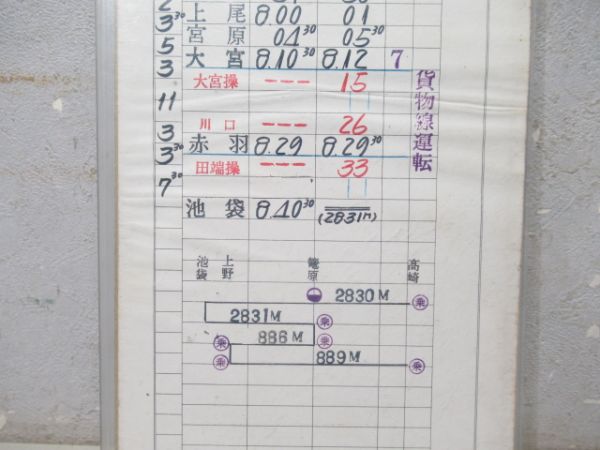 3 30 上尾 8.00 01
宮原 04 30 05 30
5
大宮 8.10 30 8.12 7
3
大宮操 --- 15
11
川口 --- 26
3
赤羽 8.29 8.29 30
3 30
田端操 --- 33
7 30
池袋 8.40 30 (2831M)
貨物線運転
池袋 上野 籠原 高崎
2830M 乗
2831M 乗
乗 886M 乗
乗 889M 乗